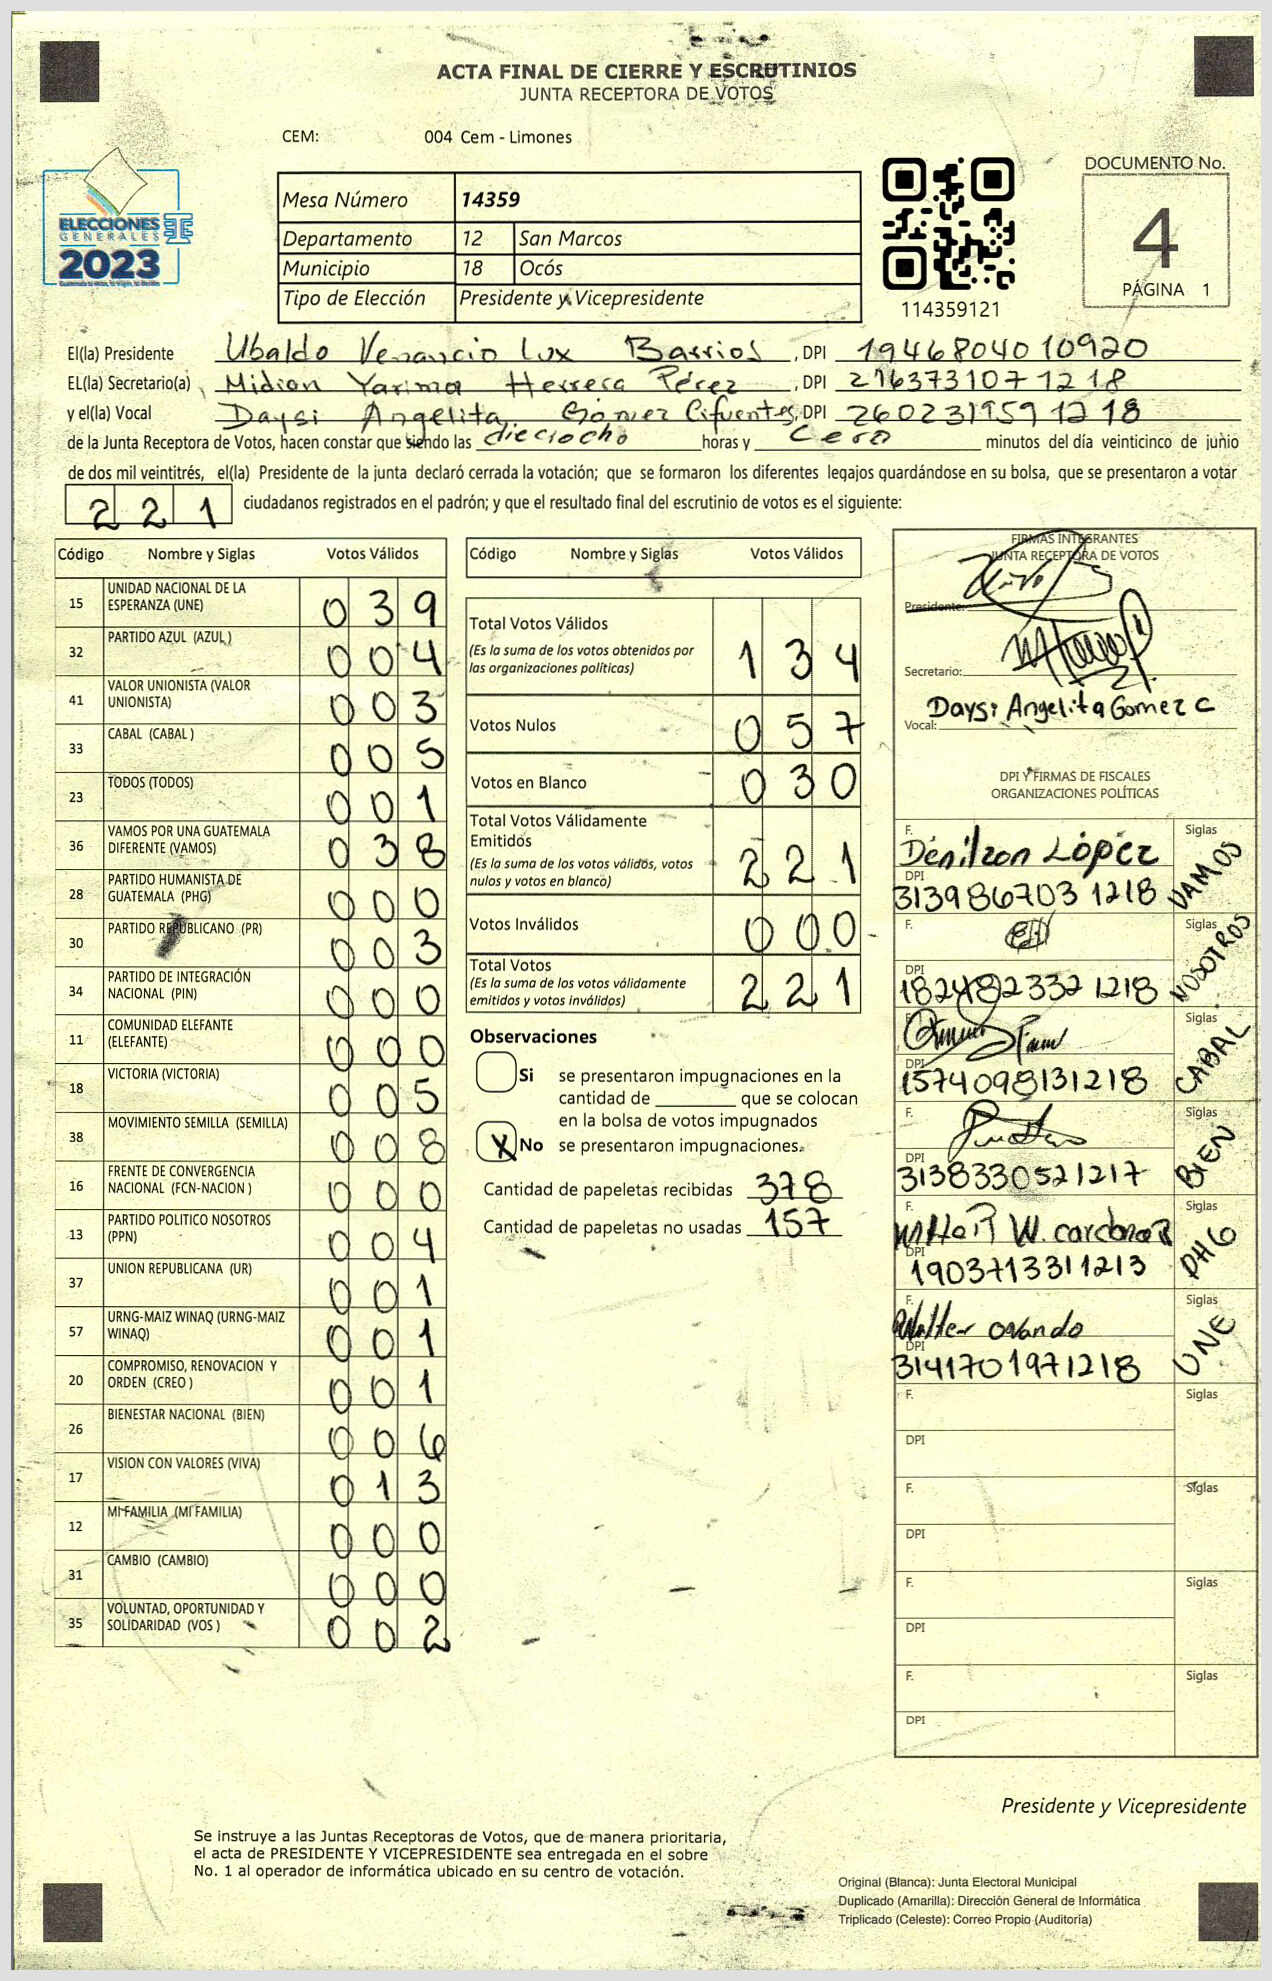 ACTA FINAL DE CIERRE Y ESCRUTINIOS
JUNTA RECEPTORA DE VOTOS
CEM: 004 Cem - Limones
ELECCIONES
GENERALES
2023
Mesa Número 14359
Departamento 12 San Marcos
Municipio 18 Ocós
Tipo de Elección Presidente y Vicepresidente
114359121
DOCUMENTO No.
4
PÁGINA 1
El(la) Presidente Ubaldo Venancio Lux Barrios, DPI 1946804010920
EL(la) Secretario(a) Midian Yarima Herrera Pérez, DPI 2763731071218
y el(la) Vocal Daysi Angelita Gómez Cifuentes, DPI 2602319591218
de la Junta Receptora de Votos, hacen constar que siendo las dieciocho horas y cero minutos del día veinticinco de junio
de dos mil veintitrés, el(la) Presidente de la junta declaró cerrada la votación; que se formaron los diferentes legajos quardándose en su bolsa, que se presentaron a votar
221 ciudadanos registrados en el padrón; y que el resultado final del escrutinio de votos es el siguiente:
Código Nombre y Siglas Votos Válidos
15 UNIDAD NACIONAL DE LA ESPERANZA (UNE) 039
32 PARTIDO AZUL (AZUL ) 004
41 VALOR UNIONISTA (VALOR UNIONISTA) 003
33 CABAL (CABAL ) 005
23 TODOS (TODOS) 001
36 VAMOS POR UNA GUATEMALA DIFERENTE (VAMOS) 038
28 PARTIDO HUMANISTA DE GUATEMALA (PHG) 000
30 PARTIDO REPUBLICANO (PR) 003
34 PARTIDO DE INTEGRACIÓN NACIONAL (PIN) 000
11 COMUNIDAD ELEFANTE (ELEFANTE) 000
18 VICTORIA (VICTORIA) 005
38 MOVIMIENTO SEMILLA (SEMILLA) 008
16 FRENTE DE CONVERGENCIA NACIONAL (FCN-NACION ) 000
13 PARTIDO POLITICO NOSOTROS (PPN) 004
37 UNION REPUBLICANA (UR) 001
57 URNG-MAIZ WINAQ (URNG-MAIZ WINAQ) 001
20 COMPROMISO, RENOVACION Y ORDEN (CREO ) 001
26 BIENESTAR NACIONAL (BIEN) 006
17 VISION CON VALORES (VIVA) 013
12 MI FAMILIA (MI FAMILIA) 000
31 CAMBIO (CAMBIO) 000
35 VOLUNTAD, OPORTUNIDAD Y SOLIDARIDAD (VOS ) 002
Código Nombre y Siglas Votos Válidos
Total Votos Válidos
(Es la suma de los votos obtenidos por
las organizaciones políticas) 134
Votos Nulos 057
Votos en Blanco 030
Total Votos Válidamente
Emitidos
(Es la suma de los votos válidos, votos
nulos y votos en blanco) 221
Votos Inválidos 000
Total Votos
(Es la suma de los votos válidamente
emitidos y votos inválidos) 221
Observaciones
Si se presentaron impugnaciones en la
cantidad de ________ que se colocan
en la bolsa de votos impugnados
X No se presentaron impugnaciones.
Cantidad de papeletas recibidas 378
Cantidad de papeletas no usadas 157
FIRMAS INTEGRANTES
JUNTA RECEPTORA DE VOTOS
Presidente:
Secretario:
Daysi Angelita Gomez C
Vocal:
DPI Y FIRMAS DE FISCALES
ORGANIZACIONES POLÍTICAS
F. Denilzon López Siglas VAMOS
DPI 3139867031218
F. Siglas NOSOTROS
DPI 1824823321218
F. Siglas CABAL
DPI 1574098131218
F. Siglas BIEN
DPI 3138330521217
F. W. Cardona R Siglas PHG
DPI 1903713311213
F. Walter Ovando Siglas UNE
DPI 3141701971218
F. Siglas
DPI
F. Siglas
DPI
F. Siglas
DPI
F. Siglas
DPI
Presidente y Vicepresidente
Se instruye a las Juntas Receptoras de Votos, que de manera prioritaria,
el acta de PRESIDENTE Y VICEPRESIDENTE sea entregada en el sobre
No. 1 al operador de informática ubicado en su centro de votación.
Original (Blanca): Junta Electoral Municipal
Duplicado (Amarilla): Dirección General de Informática
Triplicado (Celeste): Correo Propio (Auditoría)